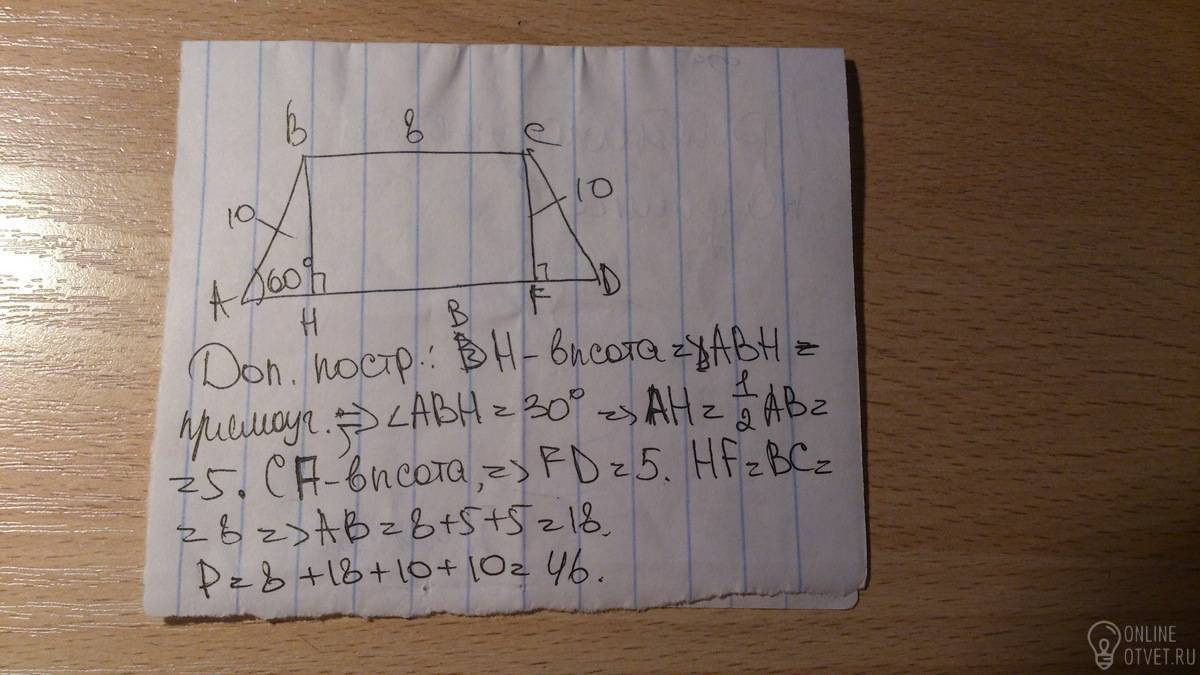 B 8 C
10 10
A 60° D
H F
B
Доп. постр.: BH - высота => ABH =
прямоуг. => ∠ABH = 30° => AH = 1/2 AB =
= 5. CF - высота, => FD = 5. HF = BC =
= 8 => AB = 8 + 5 + 5 = 18.
P = 8 + 18 + 10 + 10 = 46.
ONLINE
OTVET.RU